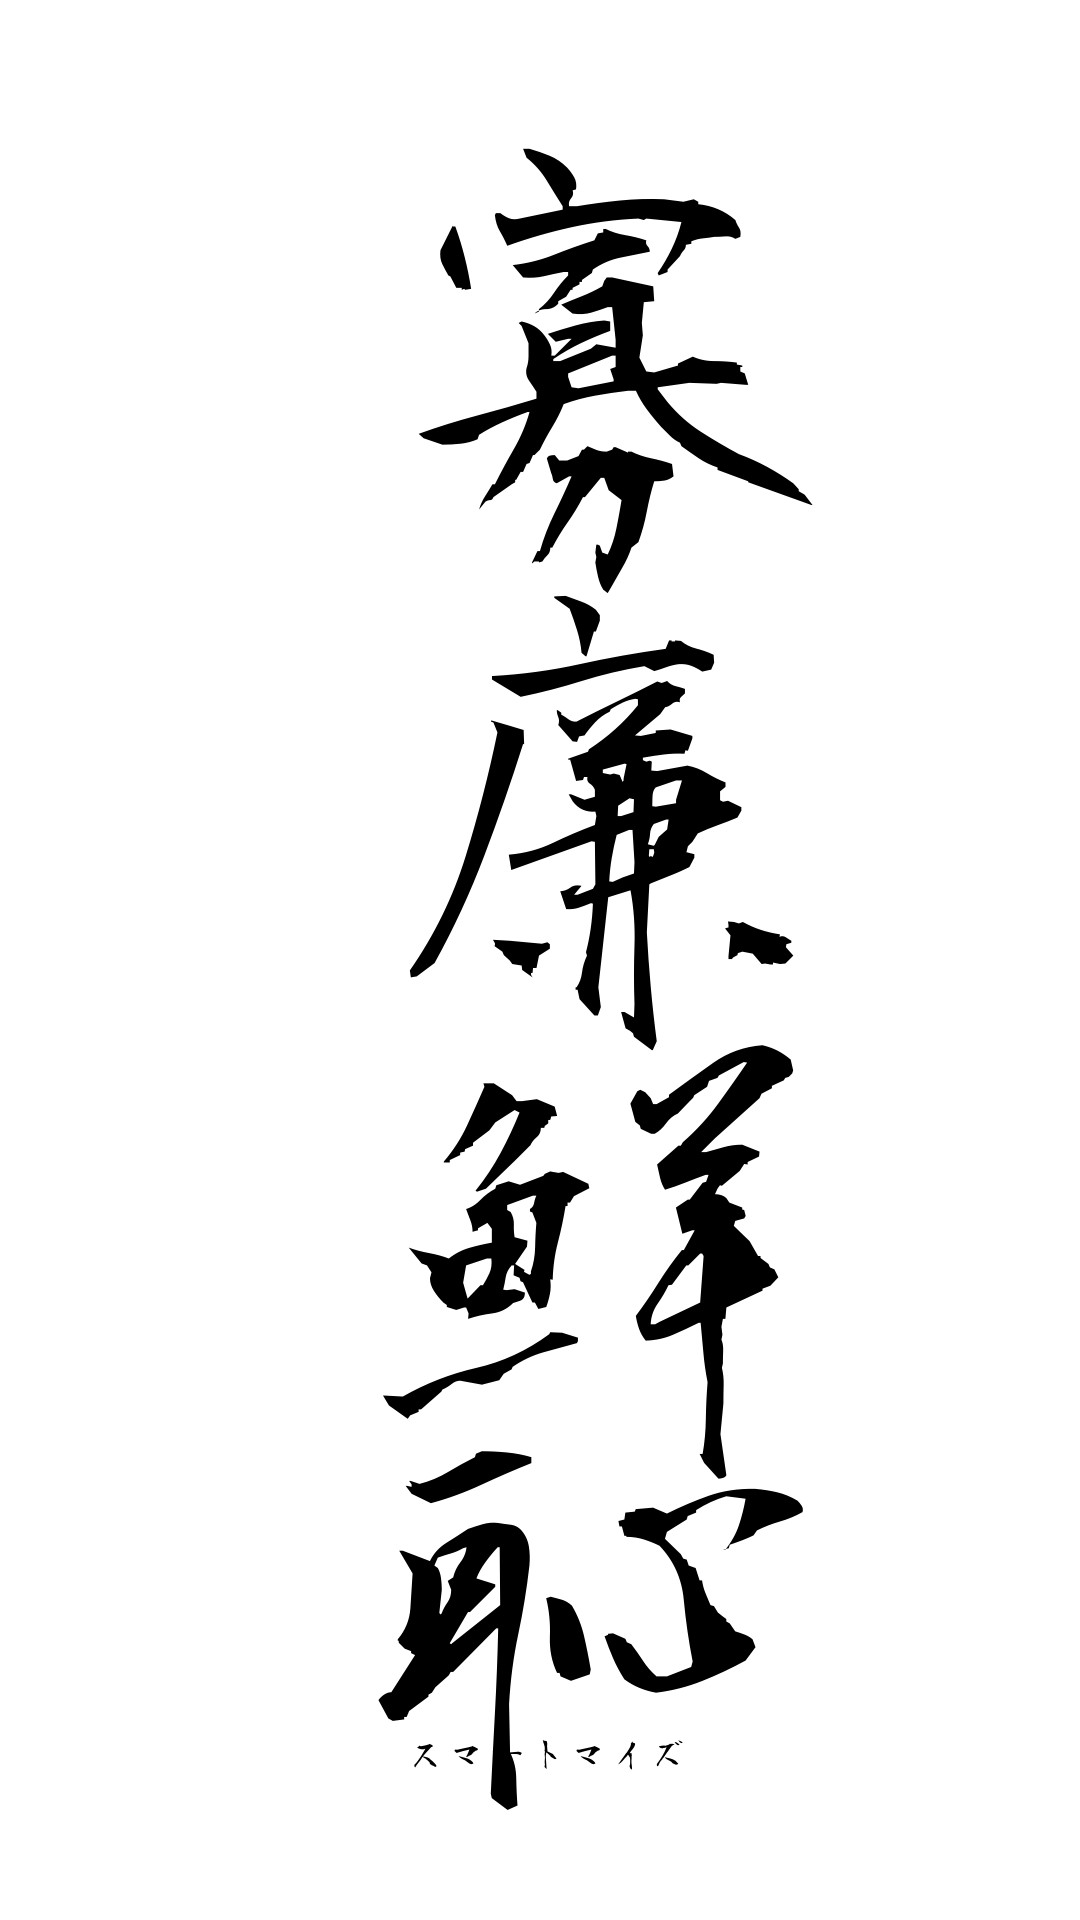 寡廉鮮恥
スマートマイズ